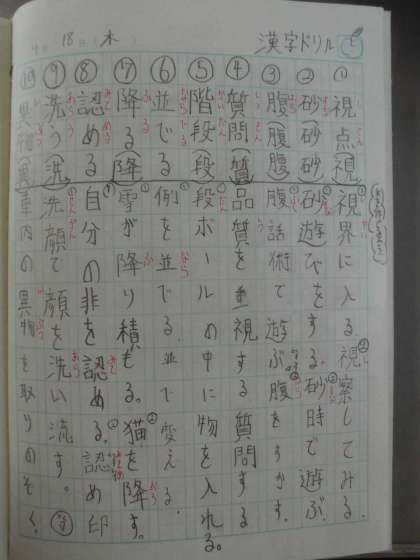 漢字ドリル 5
4. 18 (木)
① 視点(視)視界に入る。視察してみる。
② 砂(砂)砂遊びをする。砂時で遊ぶ。
③ 腹(腹)腹話術で遊ぶ。腹をすかす。
④ 質問(質)品質を重視する質問する。
⑤ 階段(段)段ボールの中に物を入れる。
⑥ 並でる 例を並でる。並で変える。
⑦ 降る(降)雪が降り積もる。猫を降す。
⑧ 認める 自分の非を認める。認め印
⑨ 洗う(洗)洗顔で顔を洗い流す。
⑩ 異 車内の異物を取りのぞく。